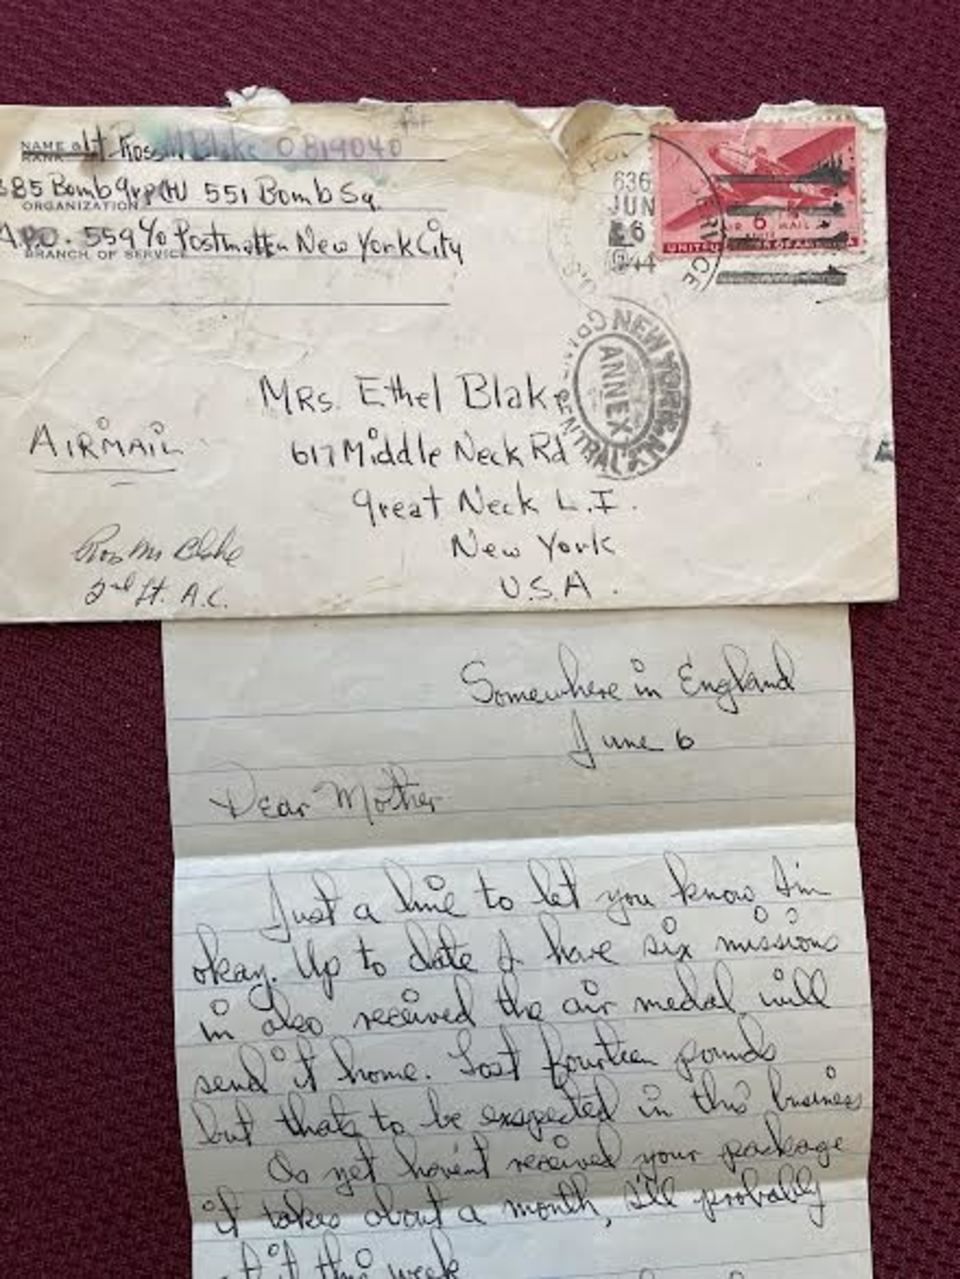 NAME &
RANK Lt. Ross M Blake O 819040
385 Bomb Grp (H) 551 Bomb Sq.
ORGANIZATION
A.P.O. 559 c/o Postmaster New York City
BRANCH OF SERVICE
636
JUN
6
1944
SERVICE
6
AIR MAIL
UNITED STATES OF AMERICA
NEW YORK, N.Y.
ANNEX
Mrs. Ethel Blake
617 Middle Neck Rd
Great Neck L.I.
New York
U.S.A.
AIRMAIL
Ross M Blake
2nd Lt. A.C.
Somewhere in England
June 6
Dear Mother
Just a line to let you know I'm
okay. Up to date I have six missions
in also received the air medal will
send it home. Lost fourteen pounds
but thats to be exspected in this business
As yet haven't received your package
it takes about a month, I'll probably
get it this week